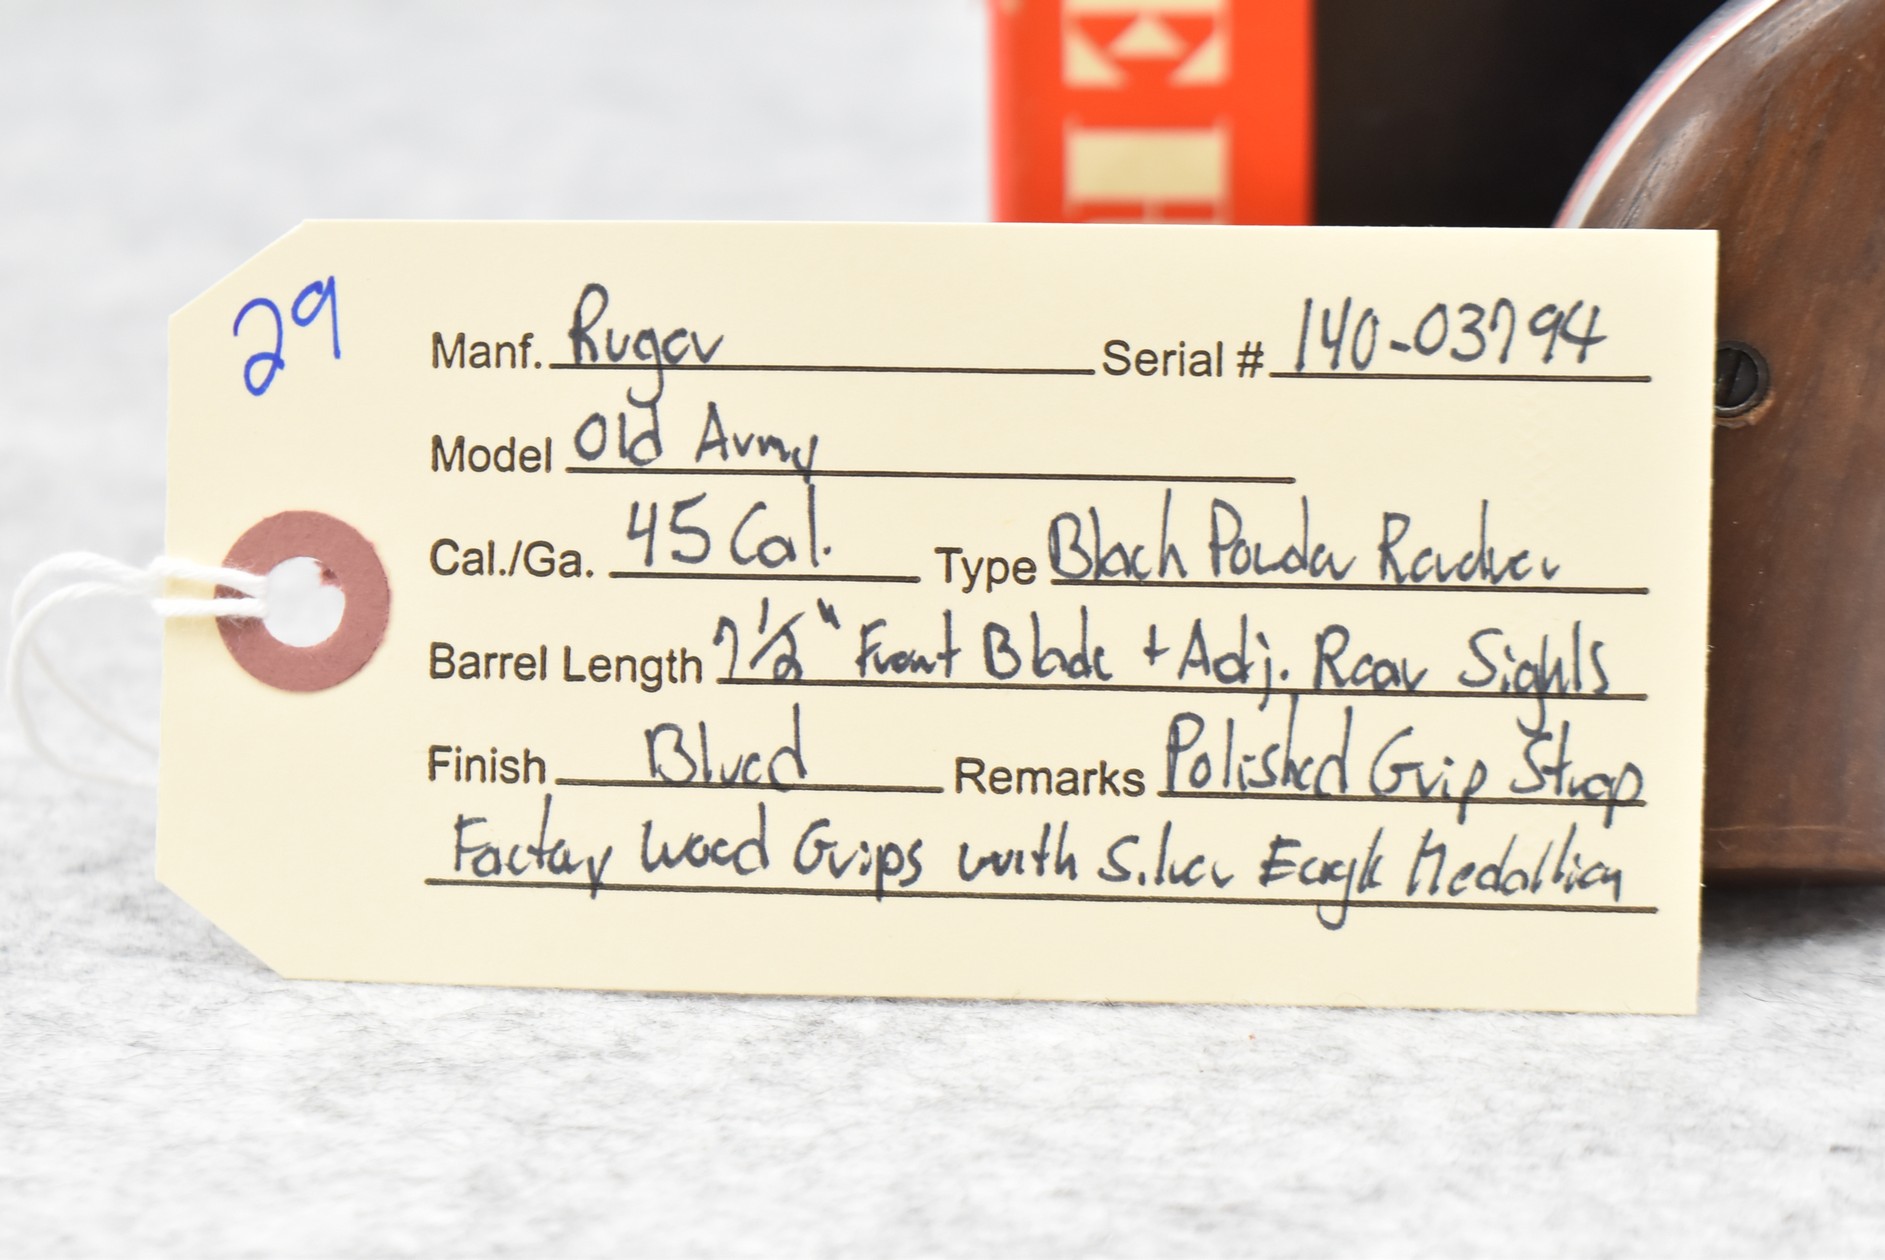 29
Manf. Ruger Serial # 140-03794
Model Old Army
Cal./Ga. 45 Cal. Type Black Powder Revolver
Barrel Length 7 1/2" Front Blade + Adj. Rear Sights
Finish Blued Remarks Polished Grip Strap
Factory Wood Grips with Silver Eagle Medallion